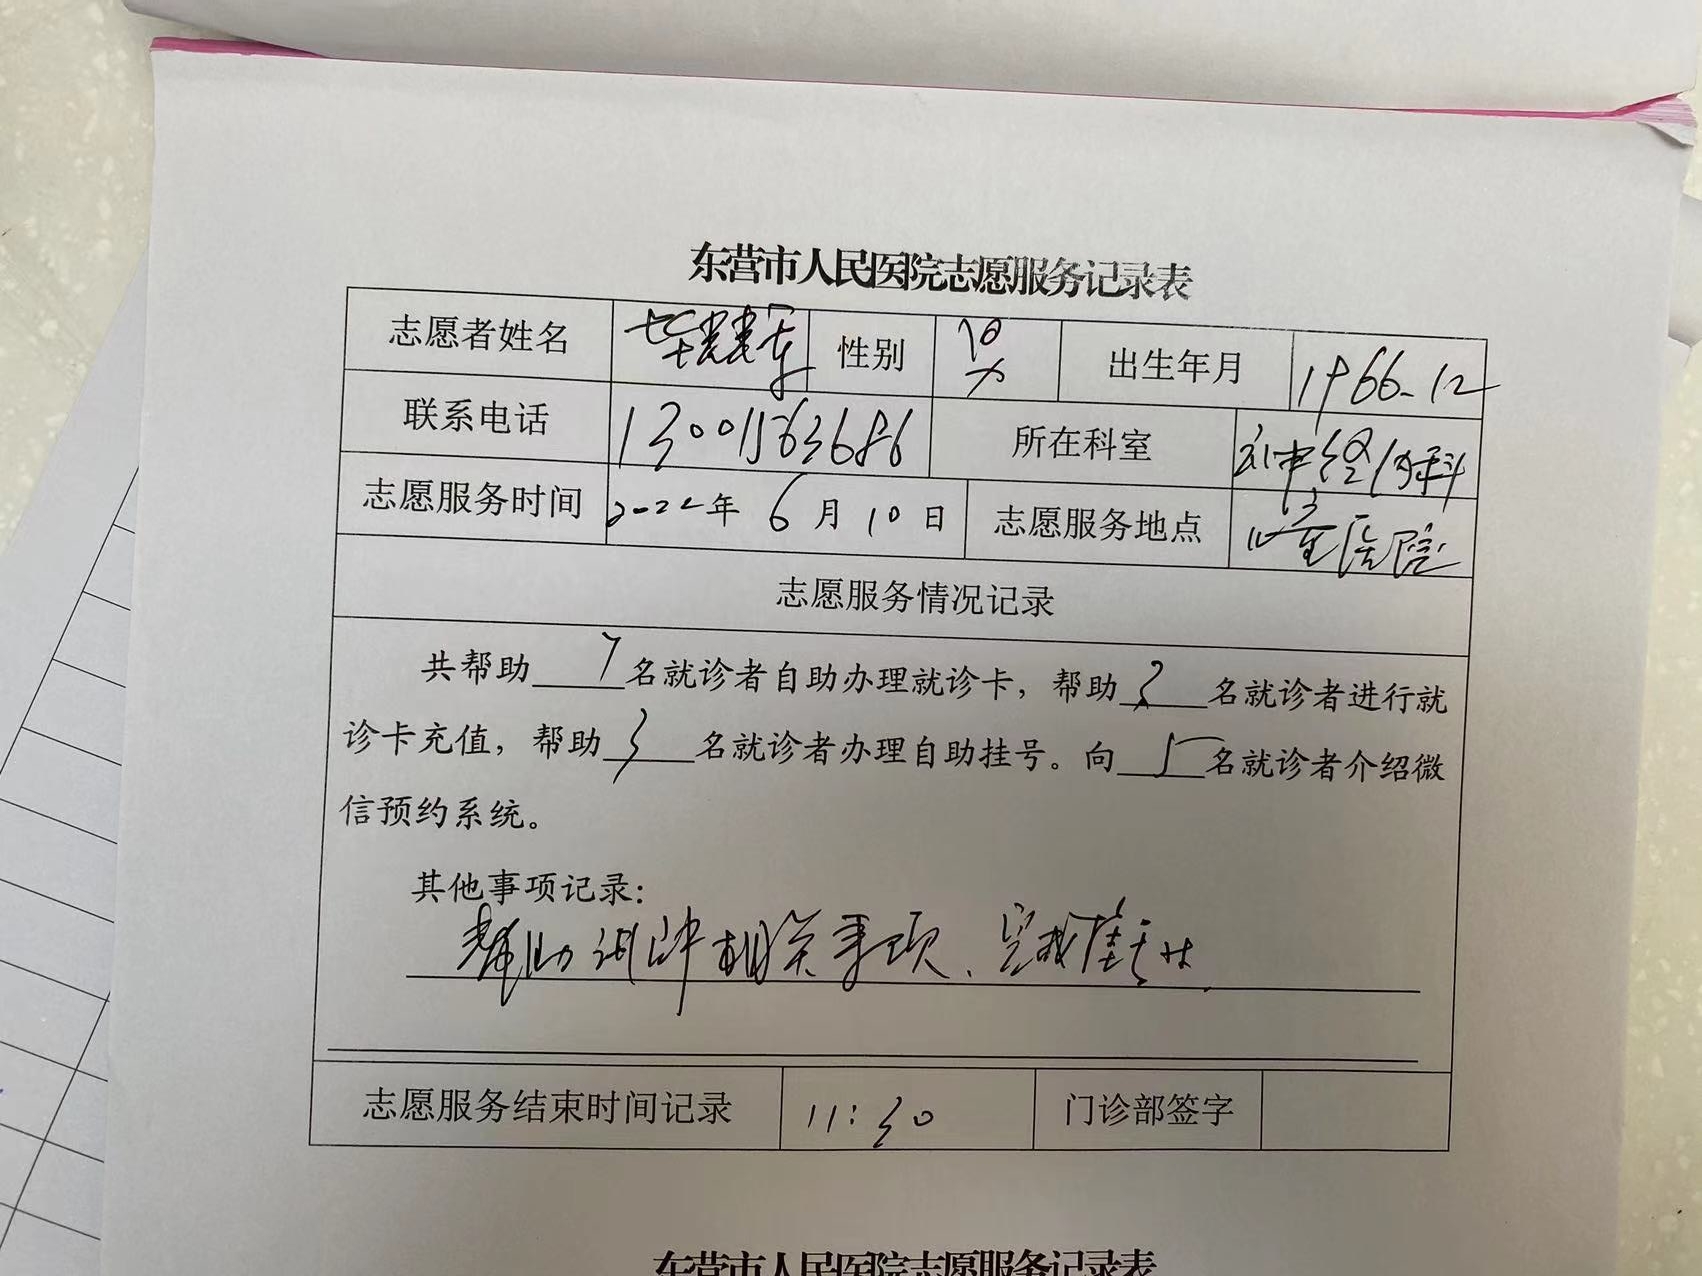 东营市人民医院志愿服务记录表
志愿者姓名 性别 男 出生年月 1966.12
联系电话 13001563686 所在科室 神经内科
志愿服务时间 2022年 6月 10日 志愿服务地点 医院
志愿服务情况记录
共帮助 7 名就诊者自助办理就诊卡，帮助 3 名就诊者进行就
诊卡充值，帮助 3 名就诊者办理自助挂号。向 5 名就诊者介绍微
信预约系统。
其他事项记录：
帮助 相关事项、完成
志愿服务结束时间记录 11:30 门诊部签字
东营市人民医院志愿服务记录表